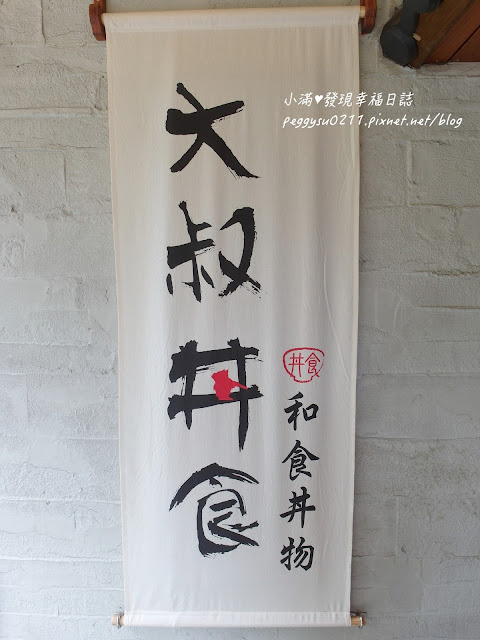 小滿♥發現幸福日誌
peggysu0211.pixnet.net/blog
大叔丼食
丼食
和食丼物